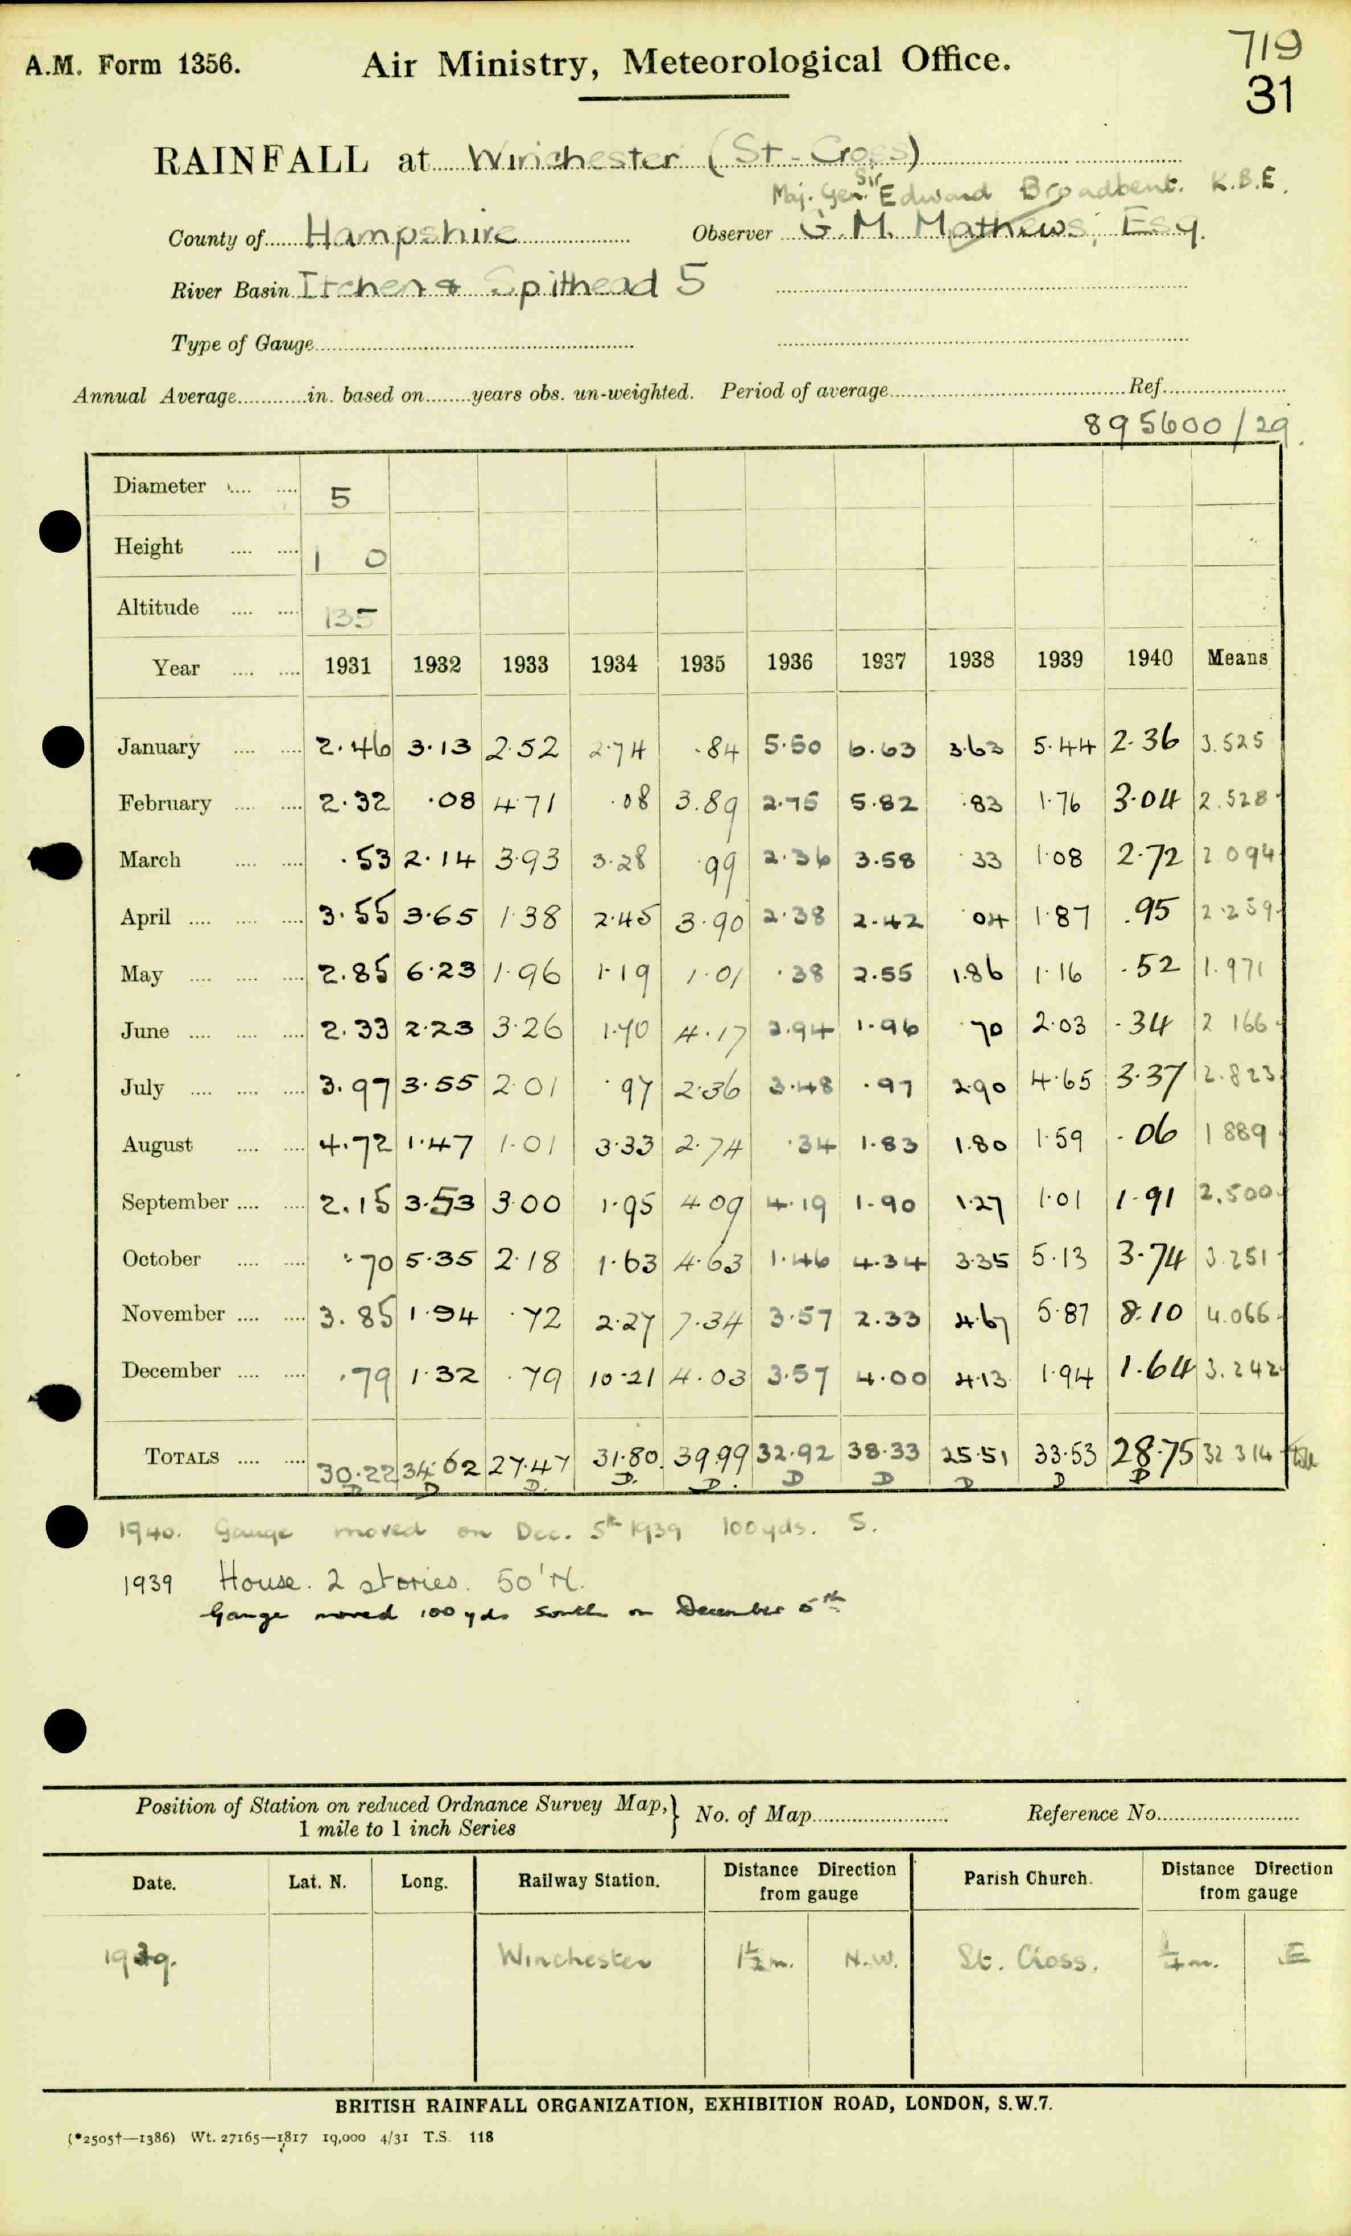 A.M. Form 1356.
Air Ministry, Meteorological Office.
719
31
RAINFALL at Winchester (St. Cross)
Maj. Gen. Sir Edward Broadbent. K.B.E.
County of Hampshire Observer G. M. Mathews, Esq.
River Basin Itchen & Spithead 5
Type of Gauge
Annual Average in. based on years obs. un-weighted. Period of average Ref.
895600/29.
Diameter 5
Height 1 0
Altitude 135
Year 1931 1932 1933 1934 1935 1936 1937 1938 1939 1940 Means
January 2.46 3.13 2.52 2.74 .84 5.50 6.63 3.63 5.44 2.36 3.525
February 2.32 .08 4.71 .08 3.89 2.75 5.82 .83 1.76 3.04 2.528
March .53 2.14 3.93 3.28 .99 2.36 3.58 .33 1.08 2.72 2.094
April 3.55 3.65 1.38 2.45 3.90 2.38 2.42 .04 1.87 .95 2.259
May 2.85 6.23 1.96 1.19 1.01 .38 2.55 1.86 1.16 .52 1.971
June 2.33 2.23 3.26 1.70 4.17 2.94 1.96 .70 2.03 .34 2 166
July 3.97 3.55 2.01 .97 2.36 3.48 .97 2.90 4.65 3.37 2.823
August 4.72 1.47 1.01 3.33 2.74 .34 1.83 1.80 1.59 .06 1 889
September 2.15 3.53 3.00 1.95 4.09 4.19 1.90 1.27 1.01 1.91 2.500
October .70 5.35 2.18 1.63 4.63 1.46 4.34 3.35 5.13 3.74 3.251
November 3.85 1.94 .72 2.27 7.34 3.57 2.33 4.67 5.87 8.10 4.066
December .79 1.32 .79 10.21 4.03 3.57 4.00 4.13 1.94 1.64 3.242
TOTALS 30.22 34.62 27.47 31.80 39.99 32.92 38.33 25.51 33.53 28.75 32 314
D D D. D. D. D D D D D
1940. Gauge moved on Dec. 5th 1939 100yds. S.
1939 House. 2 stories. 50' N.
Gauge moved 100 yds South on December 5th
Position of Station on reduced Ordnance Survey Map, } No. of Map Reference No.
1 mile to 1 inch Series
Date. Lat. N. Long. Railway Station. Distance Direction from gauge Parish Church. Distance Direction from gauge
1939. Winchester 1½ m. N.W. St. Cross. ¼ m. E
BRITISH RAINFALL ORGANIZATION, EXHIBITION ROAD, LONDON, S.W.7.
(*2505†—1386) Wt. 27165—1817 19,000 4/31 T.S. 118